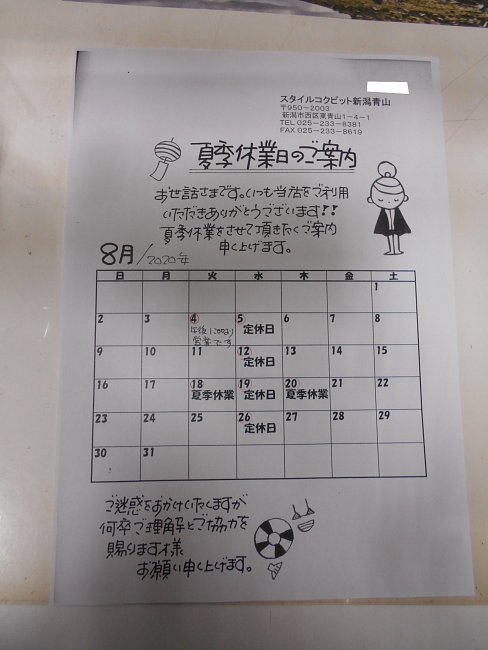 スタイルコクピット新潟青山
〒950-2003
新潟市西区東青山1-4-1
TEL 025-233-8381
FAX 025-233-8619
夏季休業日のご案内
お世話さまです。いつも当店をご利用
いただきありがとうございます!!
夏季休業をさせて頂きたくご案内
申し上げます。
8月/2020年
日 月 火 水 木 金 土
1
2 3 4 5 6 7 8
午後1:00より 定休日
営業です
9 10 11 12 13 14 15
定休日
16 17 18 19 20 21 22
夏季休業 定休日 夏季休業
23 24 25 26 27 28 29
定休日
30 31
ご迷惑をおかけいたしますが
何卒ご理解とご協力を
賜ります様
お願い申し上げます。